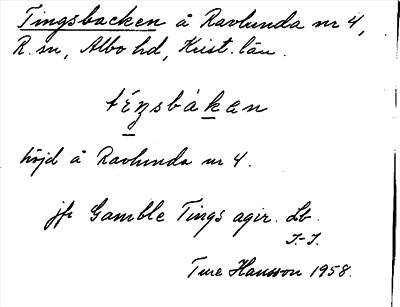 Tingsbacken å Ravlunda nr 4,
R. sn, Albo hd, Krist. län.
höjd å Ravlunda nr 4.
jfr Gamble Tings agir. Lb.
J.-J.
Ture Hansson 1958.